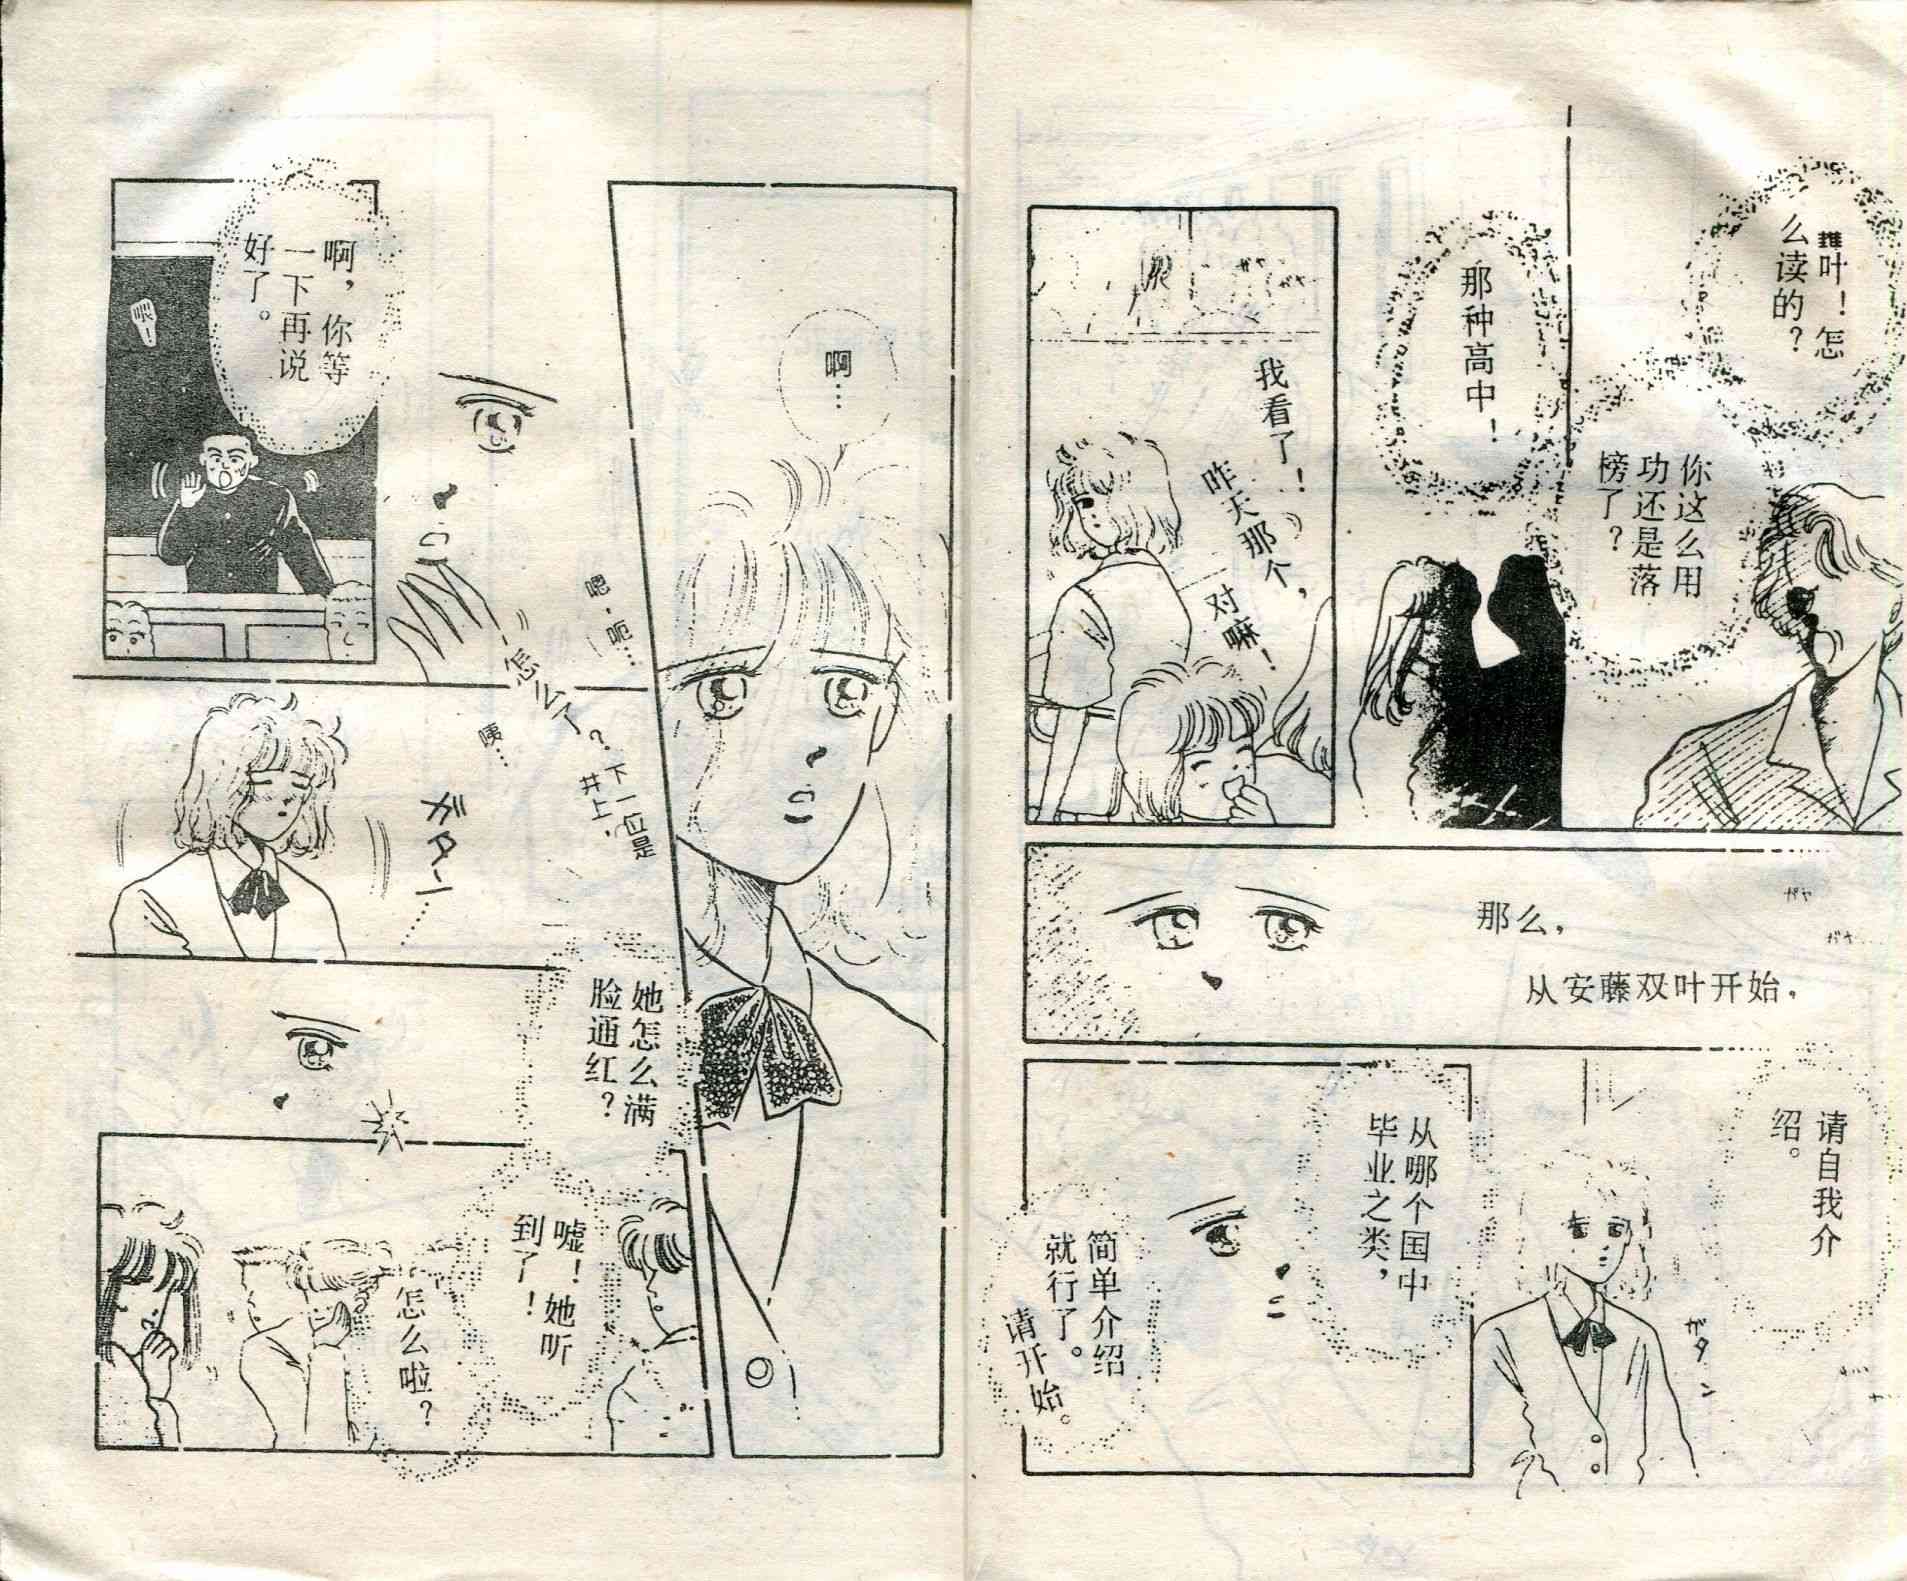 叶！怎
么读的？
你这么用
功还是落
榜了？
那种高中！
我看了！
昨天那个，
对嘛！
那么，
从安藤双叶开始，
ガヤ
ガヤ
请自我介
绍。
ガタン
从哪个国中
毕业之类，
简单介绍
就行了。
请开始。
啊…
嗯，呃…
怎么了？
下一位是
井上，
咦…
啊，你等
一下再说
好了。
ガター…
她怎么满
脸通红？
嘘！她听
到了！
怎么啦？